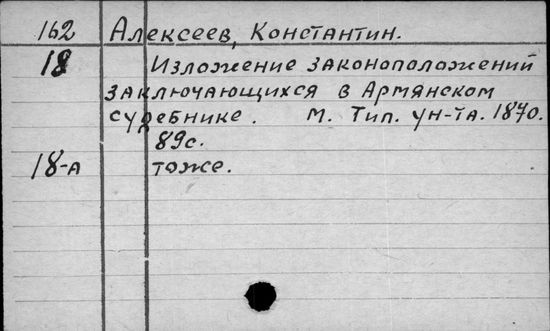 162 Алексеев, Константин.
18 Изложение законоположений
заключающихся в Армянском
судебнике. М. Тип. ун-та. 1870.
89с.
18-а тоже.